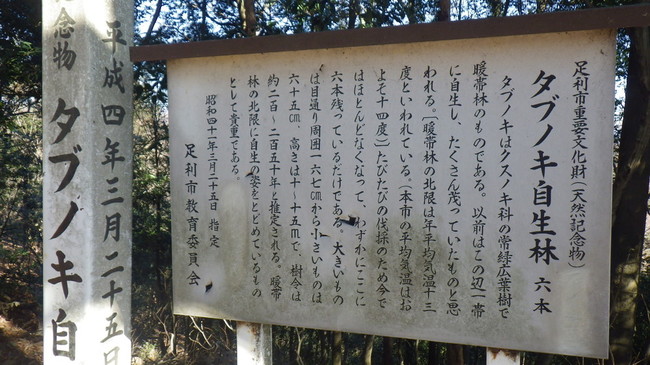 足利市重要文化財(天然記念物)
タブノキ自生林 六本
タブノキはクスノキ科の常緑広葉樹で
暖帯林のものである。以前はこの辺一帯
に自生し、たくさん茂っていたものと思
われる。〔暖帯林の北限は年平均気温十三
度といわれている。(本市の平均気温はお
よそ十四度)たびたびの伐採のため今で
はほとんどなくなって、わずかにここに
六本残っているだけである。大きいもの
は目通り周囲一六七cmから小さいものは
六十五cm、高さは十~十五mで、樹令は
約二百~二百五十年と推定される。暖帯
林の北限に自生の姿をとどめているもの
として貴重である。
昭和四十一年三月二十五日 指定
足利市教育委員会
平成四年三月二十五日
念物 タブノキ自